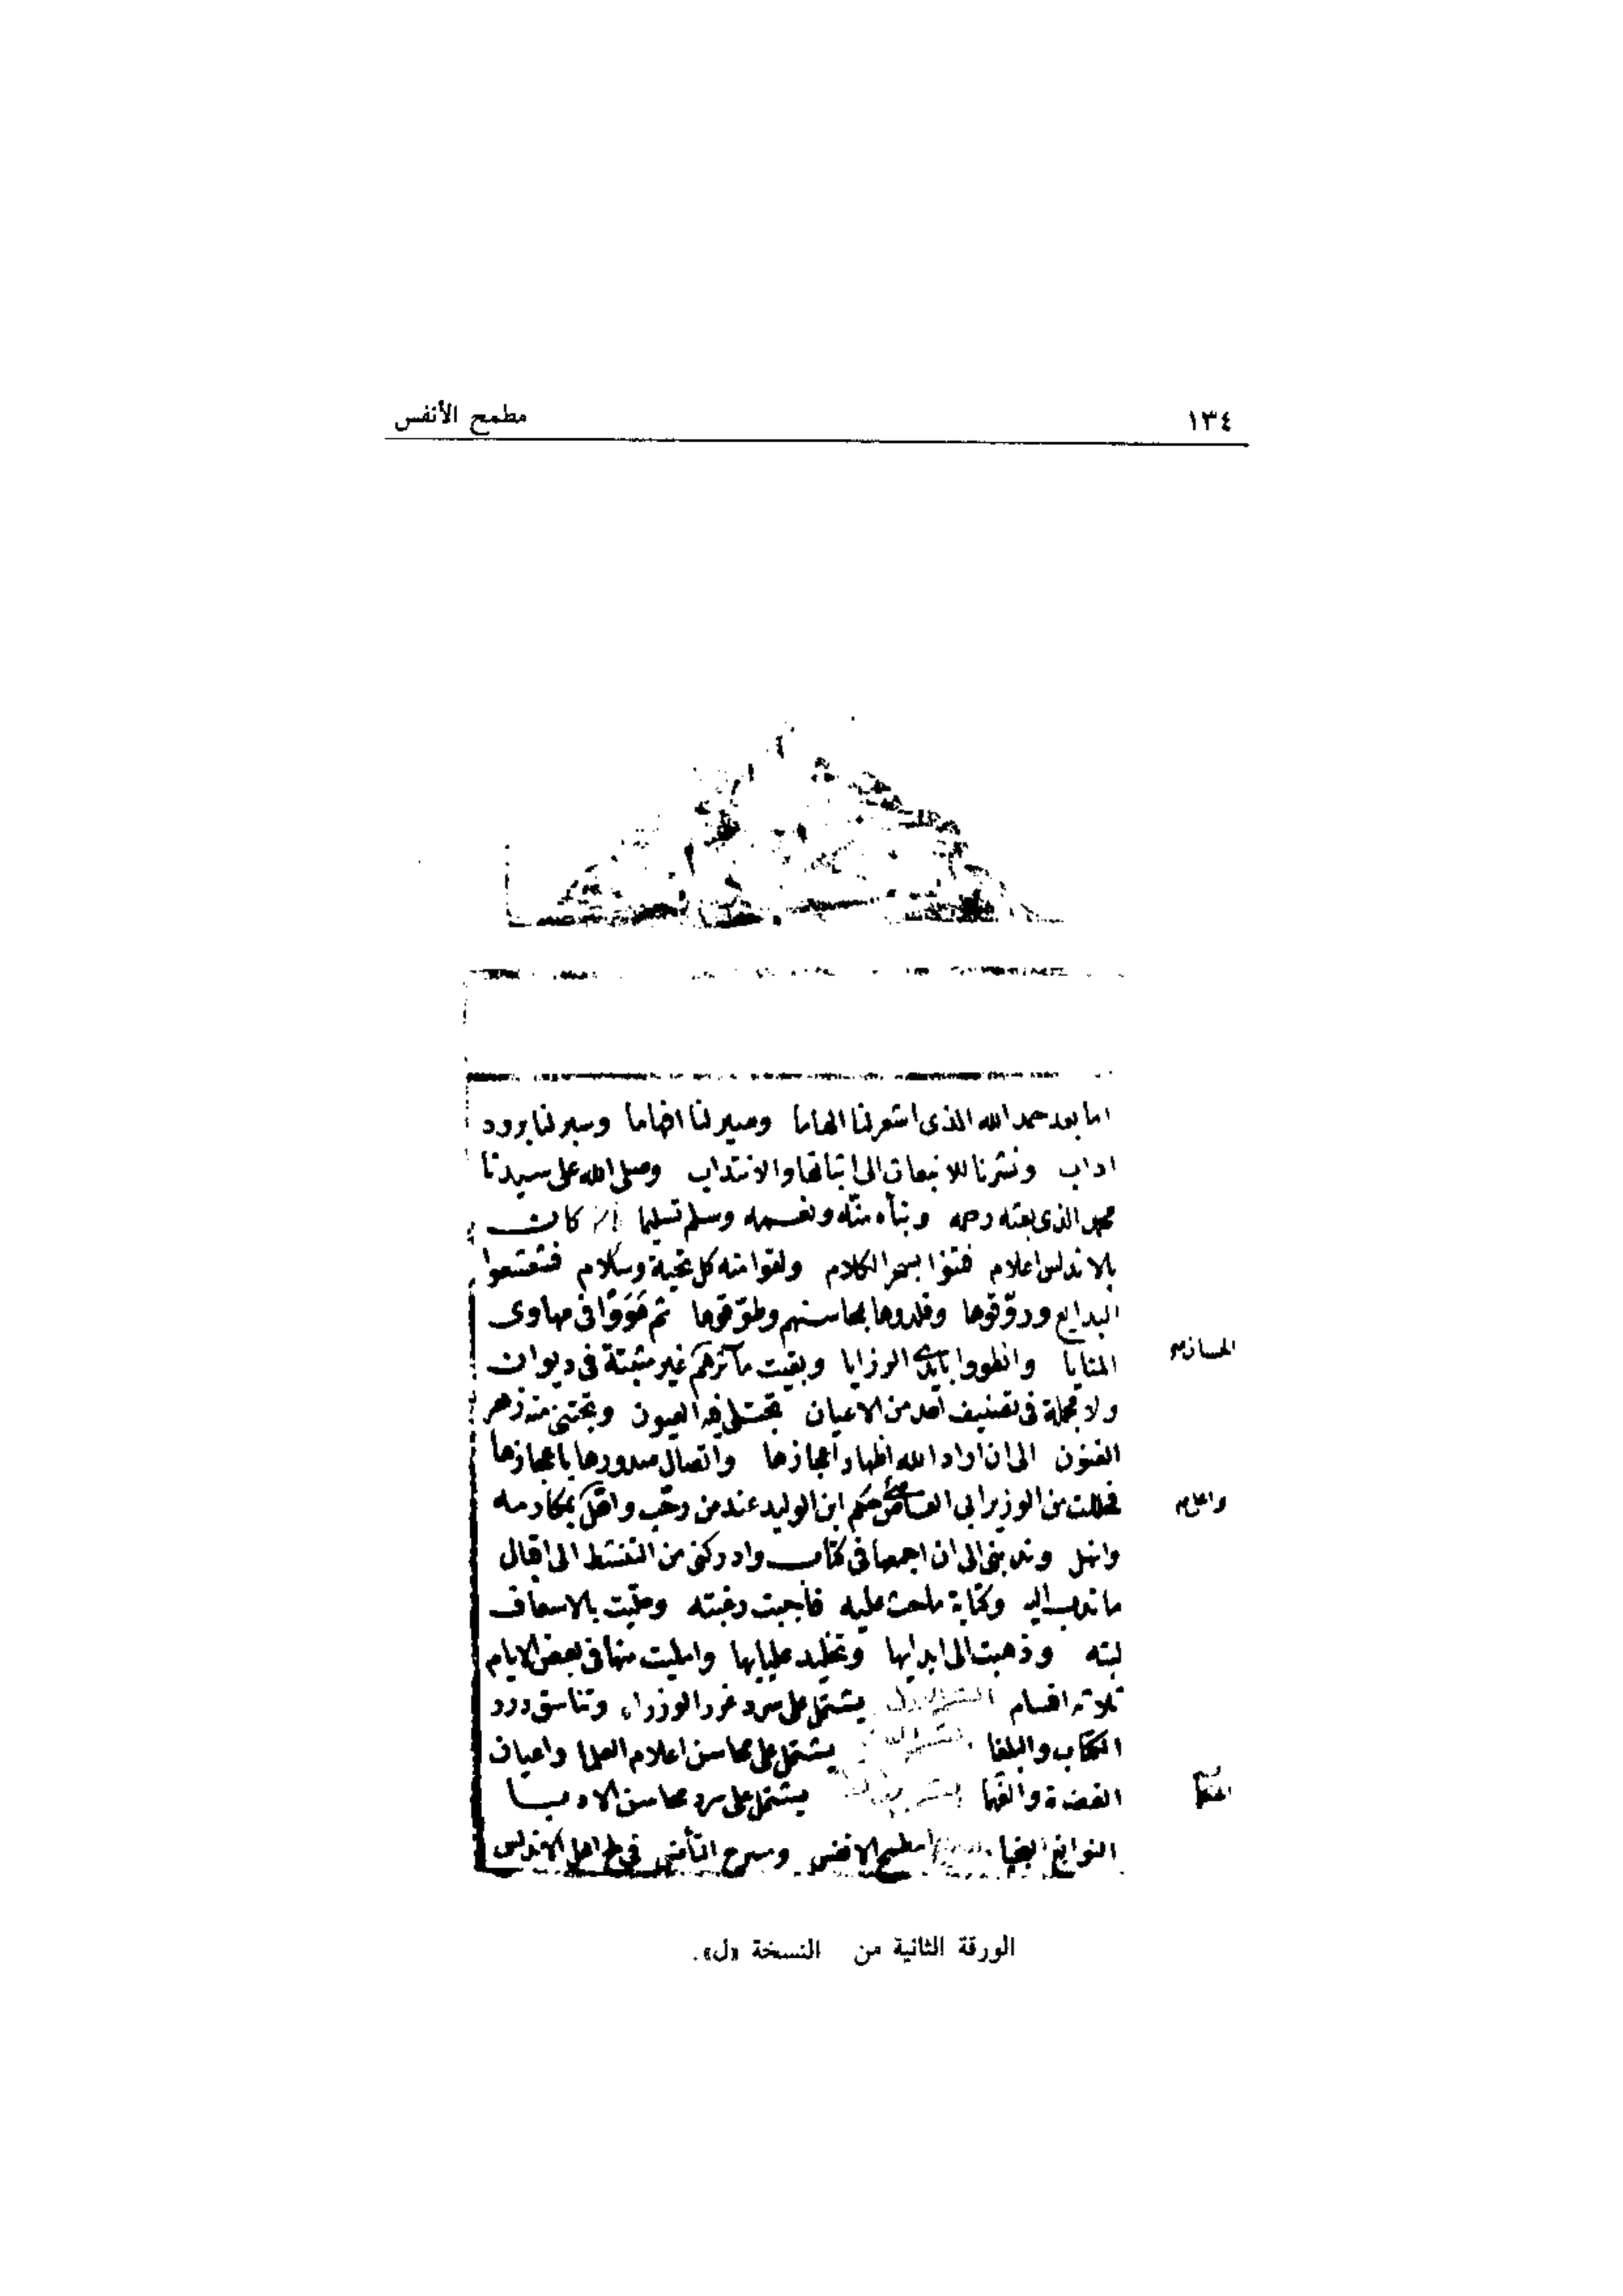 ١٣٤
مطمح الأنفس
اما بعد حمد الله الذى اشعرنا الهاما وصير لنا افهاما وسير لنا برود
اداب ونشرنا للانبعاث الى اثباتها والانتداب وصلى الله على سيدنا
محمد الذى بعثه رحمه ونبأه منّه ونعمه وسلم تسليما كان
بالاندلس اعلام فتنوا بسحر الكلام ولقوا منه كل تحية وسلام فشعشعوا
البدايع وروّقوها وقلدوها بمحاسنهم وطوّقوها ثم هَوَوْا فى مهاوى
المنايا وانطووا بايدى الرزايا وبقيت مآثرهم غير مثبتة فى ديوان
ولا مجملة فى تصنيف احد من الاعيان تجتلى فيه العيون وتجتنى منه زهر
الفنون الى ان اراد الله اظهار اعجازها واتصال صدورها باعجازها
فحللت من الوزير ابى العاص حكم ابن الوليد عند من رحّب واهلّ بمكارمه
وانهل وندبنى الى ان اجمعها فى كتاب وادركنى من التنشط الى اقبال
ما ندب اليه وكتابة ما حث عليه فاجبت رغبته وحليت بالاسعاف
لبته وذهبت الى ابدايها وتخليد عليايها وامليت منها فى بعض الايام
ثلاثه اقسام القسم الاول يشتمل على سرد غرر الوزراء وتناسق درر
الكتاب والبلغا القسم يشتمل على محاسن اعلام العلما واعيان
القضاة والفقها القسم يشتمل على سرد محاسن الادبـا
النوابغ النجبا مطمح الانفس ومسرح التأنس فى ملح اهل الاندلس
الورقة الثانية من النسخة «ل».